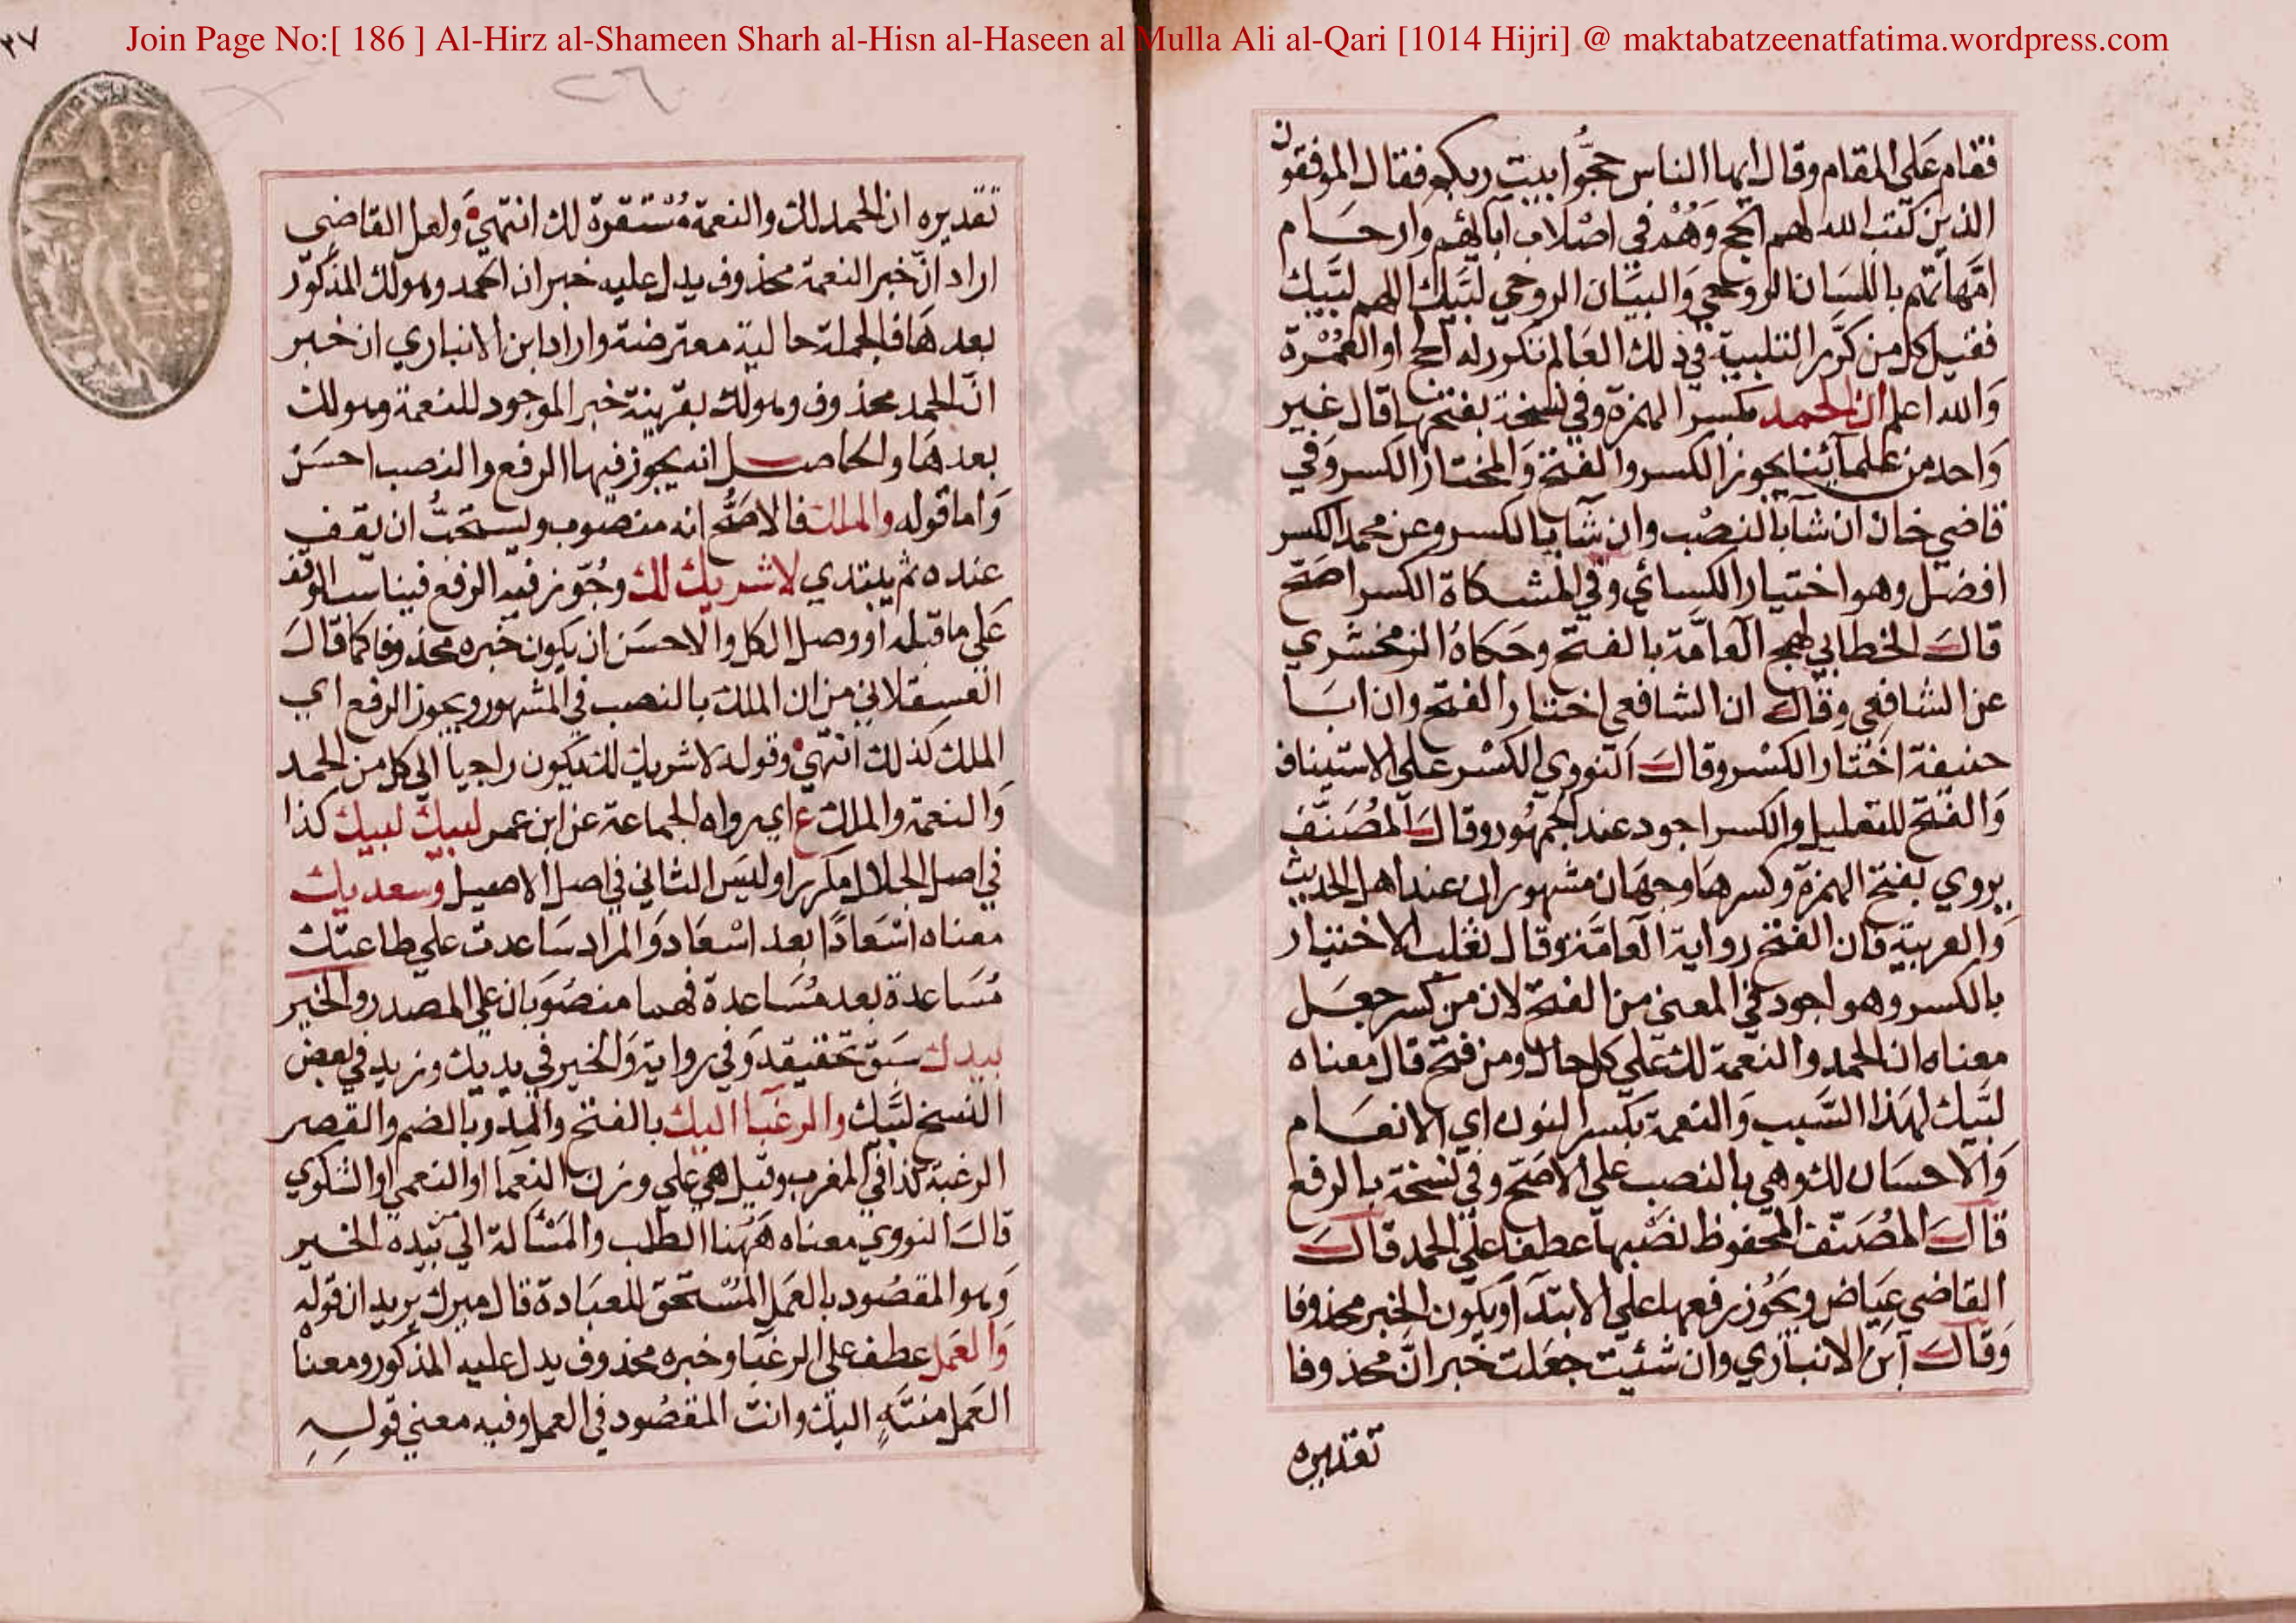 Join Page No:[ 186 ] Al-Hirz al-Shameen Sharh al-Hisn al-Haseen al Mulla Ali al-Qari [1014 Hijri] @ maktabatzeenatfatima.wordpress.com
فقام على المقام وقال ايها الناس حجوا بيت ربكم فقال الموفقون
الذين كتب الله لهم الحج وهم في اصلاب آبائهم وارحام
امهاتهم باللسان الروحي والبيان الروحي لبيك اللهم لبيك
فقيل كل من كرر التلبية في ذلك العالم تكرر له الحج او العمرة
والله اعلم ان الحمد بكسر الهمزة وفي نسخة بفتحها قال غير
واحد من علمائنا يجوز الكسر والفتح والمختار الكسر وفي
قاضي خان ان شآ بالنصب وان شآ بالكسر وعن محمد الكسر
افضل وهو اختيار الكسائي وفي المشكاة الكسر اصح
قال الخطابي لهج العامة بالفتح وحكاه الزمخشري
عن الشافعي وقال ان الشافعي اختار الفتح وان ابا
حنيفة اختار الكسر وقال النووي الكسر على الاستيناف
والفتح للتعليل والكسر اجود عند الجمهور وقال المصنف
يروي بفتح الهمزة وكسرها وجهان مشهوران عند اهل الحديث
والعربية فان الفتح رواية العامة وقال ثعلب الاختيار
بالكسر وهو اجود في المعنى من الفتح لان من كسر جعل
معناه ان الحمد والنعمة لك على كل حال ومن فتح قال معناه
لبيك لهذا السبب والنعمة بكسر النون اي الانعام
والاحسان لك وهي بالنصب على الاصح وفي نسخة بالرفع
قال المصنف المحفوظ نصبها عطفا على الحمد قال
القاضي عياض ويجوز رفعها على الابتدآ ويكون الخبر محذوفا
وقال ابن الانباري وان شئت جعلت خبر ان محذوفا
تقديره
٢٧
٢٦
تقديره ان الحمد لك والنعمة مستقرة لك انتهى ولعل القاضي
اراد ان خبر النعمة محذوف يدل عليه خبر ان الحمد وهو لك المذكور
بعدها فالجملة حالية معترضة واراد ابن الانباري ان خبر
ان الحمد محذوف وهو لك بقرينة خبر الموجود للنعمة وهو لك
بعدها والحاصل انه يجوز فيها الرفع والنصب احسن
واما قوله والملك فالاصح انه منصوب ويستحب ان يقف
عنده ثم يبتدي لا شريك لك وجوز فيه الرفع فيناسب الوقف
على ما قبله او وصل الكل والاحسن ان يكون خبره محذوفا كما قال
العسقلاني من ان الملك بالنصب في المشهور ويجوز الرفع اي
الملك كذلك انتهى وقوله لا شريك لك يكون راجعا الى كل من الحمد
والنعمة والملك ع اي رواه الجماعة عن ابن عمر لبيك لبيك كذا
في اصل الجلال مكررا وليس الثاني في اصل الاصيل وسعديك
معناه اسعادا بعد اسعاد والمراد ساعدت على طاعتك
مساعدة بعد مساعدة فهما منصوبان على المصدر والخير
بيدك سبق تحقيقه وفي رواية والخير في يديك وزيد في بعض
النسخ لبيك والرغبا اليك بالفتح والمد وبالضم والقصر
الرغبة كذا في المغرب وقيل هي على وزن النعما او النعمى او الشكوي
قال النووي معناه ههنا الطلب والمسئالة الى بيده الخير
وهو المقصود بالعمل المستحق للعبادة قال ميرك يريد ان قوله
والعمل عطف على الرغبا وخبره محذوف يدل عليه المذكور ومعناه
العمل منته اليك وانت المقصود في العمل وفيه معنى قوله